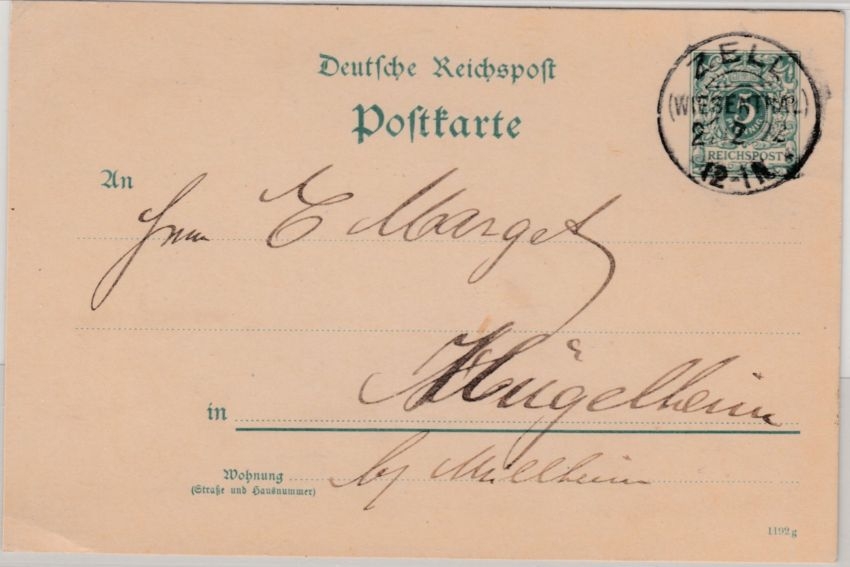 Deutsche Reichspost
Postkarte
ZELL
(WIESENTHAL)
5
REICHSPOST
12-1N.
An
Herrn E Marget
in Hügelheim
Wohnung
by Müllheim
(Straße und Hausnummer)
1192g